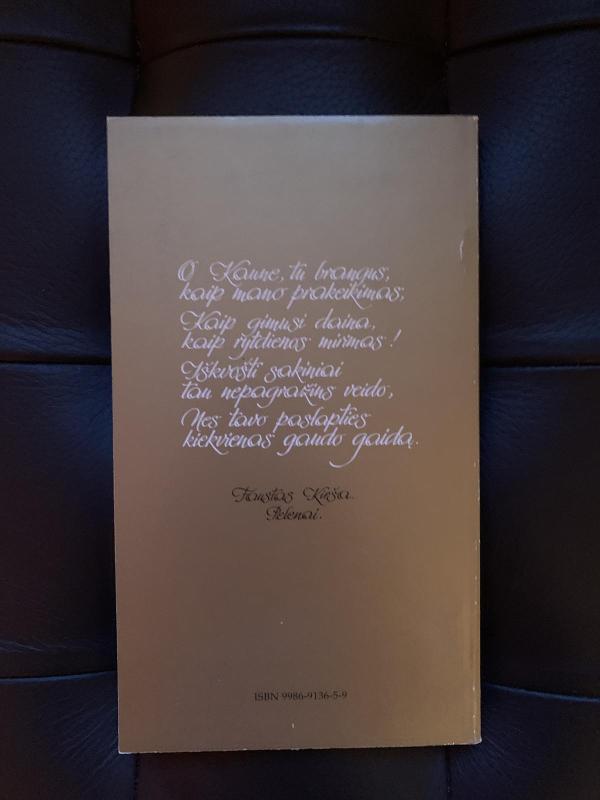 O Kaune, tu brangus,
kaip mano prakeikimas,
Kaip gimusi daina,
kaip rytdienos mirimas!
Iškvošti sakiniai
tau nepagražins veido,
Nes tavo paslapties
kiekvienas gaudo gaidą.
Faustas Kirša.
Pelenai.
ISBN 9986-9136-5-9